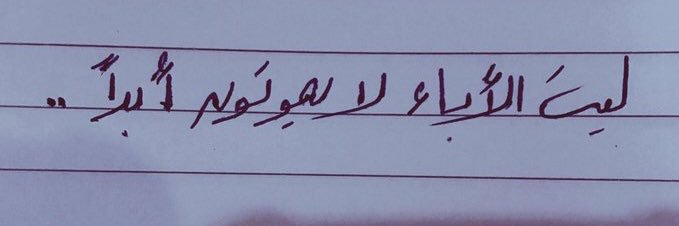 ليتَ الأباء لا يموتون أبداً ..